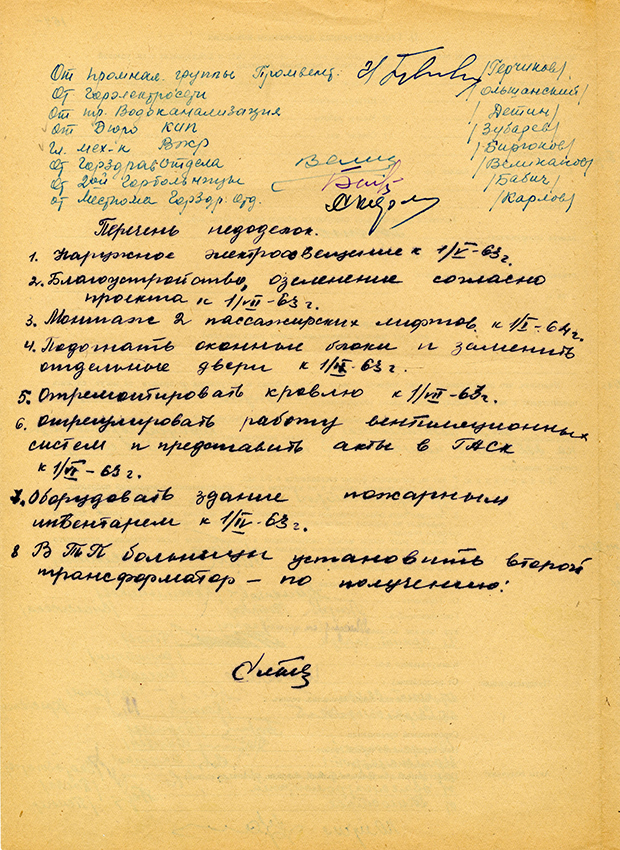 От промнал. группы Промвент. /Герчиков/
От Горэлектросети /Ольшанский/
От тр. Водоканализация /Детин/
От Бюро КИП /Зубарев/
Гл. мех-к ВЖР /Бирюков/
От Горздравотдела /Велиханов/
От 2ой Горбольницы /Бабич/
от Месткома Горздр. Отд. /Карлов/
Перечень недоделок.
1. Наружное электроосвещение к 1/V-63г.
2. Благоустройство, озеленение согласно
проекта к 1/VII-63г.
3. Монтаж 2 пассажирских лифтов к 1/I-64г.
4. Подогнать оконные блоки и заменить
отдельные двери к 1/ -63г.
5. Отремонтировать кровлю к 1/VII-63г.
6. Отрегулировать работу вентиляционных
систем и представить акты в ГАСК
к 1/VI-63г.
7. Оборудовать здание пожарным
инвентарем к 1/IV-63г.
8 В ТП больницы установить второй
трансформатор - по получению.